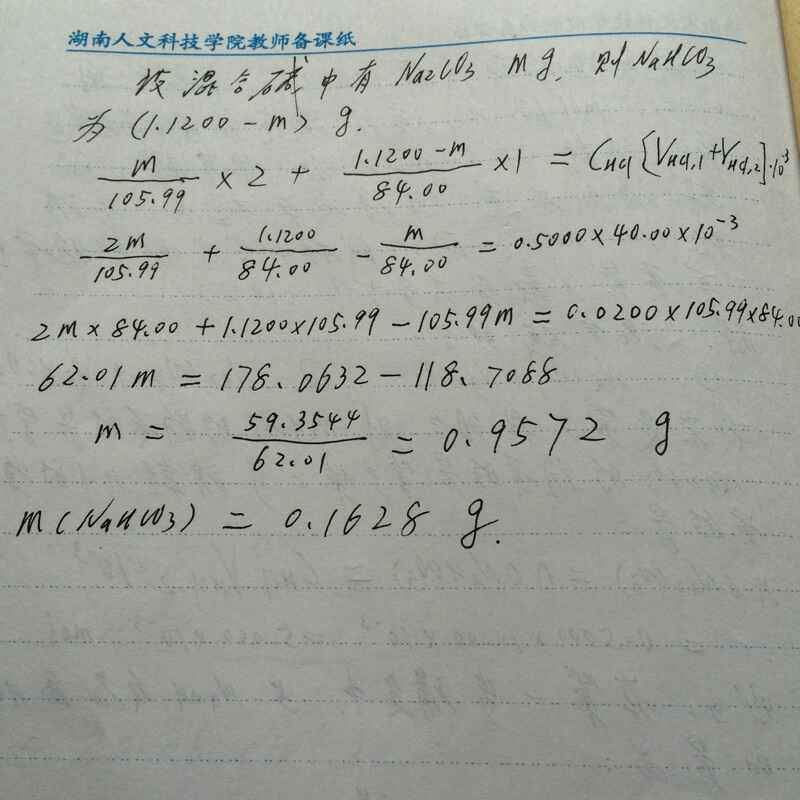 湖南人文科技学院教师备课纸
设混合碱中有 Na2CO3 m g, 则 NaHCO3
为 (1.1200-m) g.
m/105.99 × 2 + 1.1200-m/84.00 × 1 = CHCl [VHCl,1 + VHCl,2]·10^-3
2m/105.99 + 1.1200/84.00 - m/84.00 = 0.5000×40.00×10^-3
2m×84.00 + 1.1200×105.99 - 105.99m = 0.0200×105.99×84.00
62.01m = 178.0632 - 118.7088
m = 59.3544/62.01 = 0.9572 g
m(NaHCO3) = 0.1628 g.